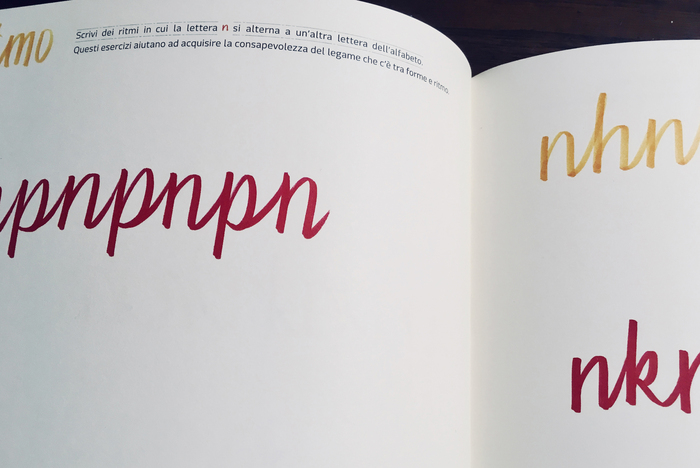 Scrivi dei ritmi in cui la lettera n si alterna a un'altra lettera dell'alfabeto.
Questi esercizi aiutano ad acquisire la consapevolezza del legame che c'è tra forme e ritmo.
pnpnpn
nhn
nk